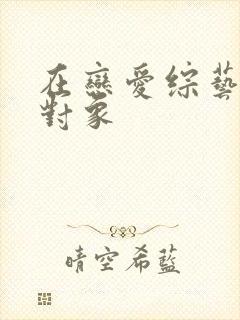 在戀愛綜藝
對象
晴空希藍